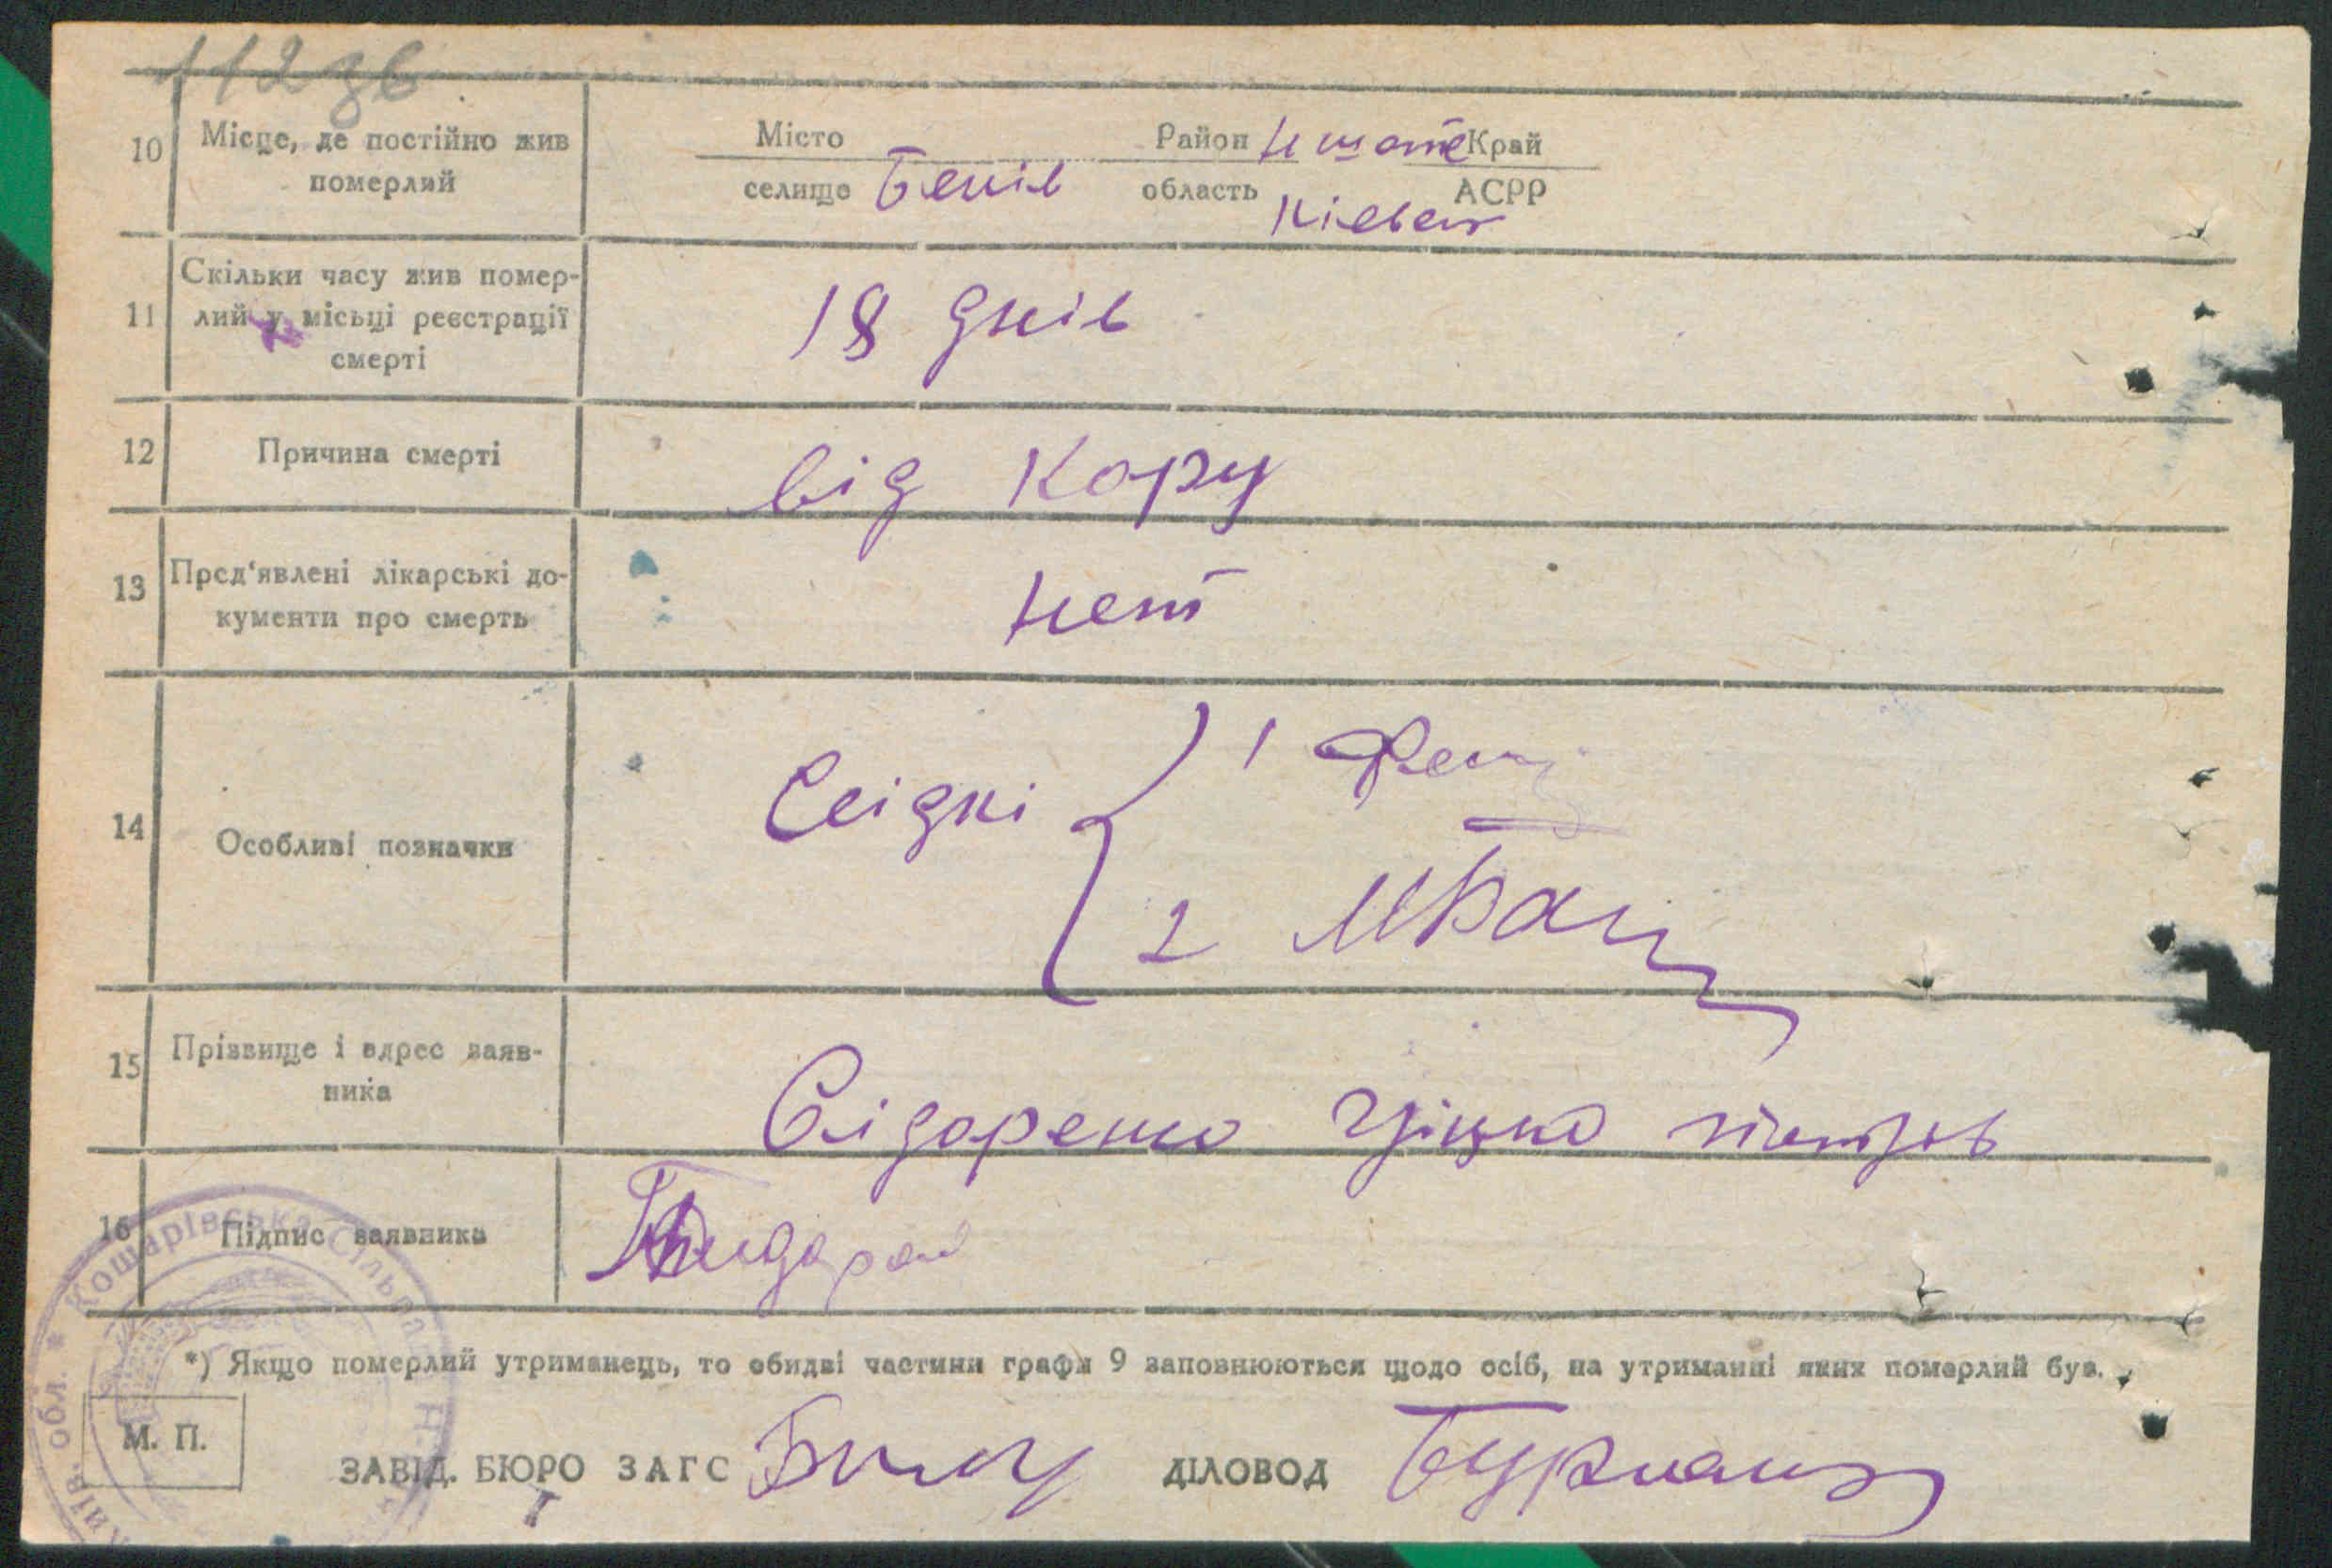 112 зв
10 Місце, де постійно жив померлий
Місто селище Бенів Район Н шате Край
область Кіевск АСРР
11 Скільки часу жив помер-
лий у місьці реєстрації
смерті
18 днів
12 Причина смерті
від Кору
13 Пред'явлені лікарські до-
кументи про смерть
нет
14 Особливі позначки
Свідкі 1
2
15 Прізвище і адрес заяв-
ника
Сідоренко Гріцко
16 Підпис заявника
*) Якщо померлий утриманець, то обидві частини графи 9 заповнюються щодо осіб, на утриманні яких померлий був.
М. П.
ЗАВІД. БЮРО ЗАГС ДІЛОВОД
Кошарівська Сільська
Київ. обл.